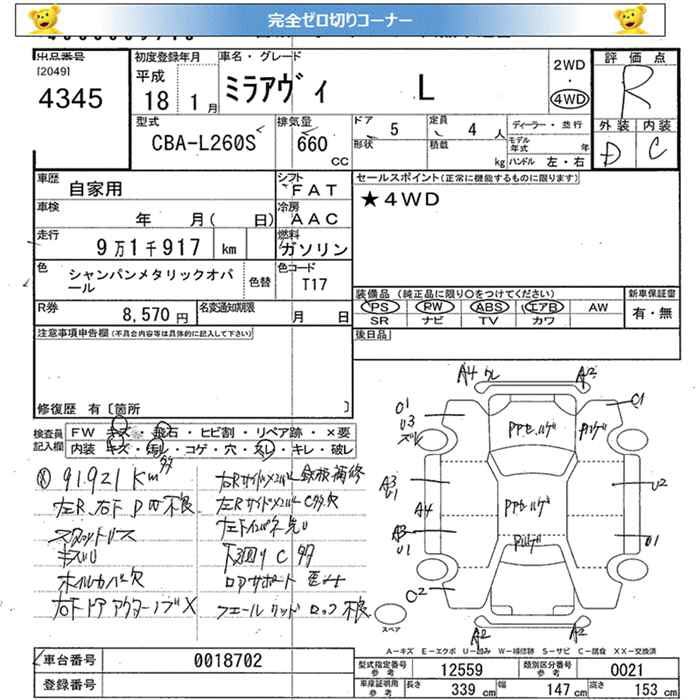 完全ゼロ切りコーナー
出品番号 初度登録年月 車名・グレード 評価点
[2049] 平成 2WD
4345 18 1月 ミラアヴィ L 4WD R
型式 排気量 ドア 5 定員 4 人 ディーラー・並行 外装 内装
CBA-L260S 660 CC 形状 積載 kg モデル年式 年 D C
ハンドル 左・右
車歴 自家用 シフト FAT セールスポイント(正常に機能するものに限ります)
車検 年 月( 日) 冷房 AAC ★4WD
走行 9万1千917 km 燃料 ガソリン
色 シャンパンメタリックオパール 色替 色コード T17
R券 8,570円 名変通知期限 月 日
装備品(純正品に限り○をつけてください) 新車保証書
PS PW ABS エアB AW 有・無
SR ナビ TV カワ
注意事項申告欄(不具合内容等は具体的に記入して下さい) 後日品
修復歴 有[箇所 ]
検査員記入欄 FW キズ・飛石・ヒビ割・リペア跡・×要
内装 キズ・汚レ・コゲ・穴・スレ・キレ・破レ
91.921 Km
左R、右F DW不良
スタットレス
キズU
ホイルカバ欠
右Fドアアウターノブ×
右Rサイドメンバー
左Rサイドメンバー
下廻りC多
フェールリッドロック不良
A4 A2
01 U3 01
A3 U1 A4 U2
A3 U1 01
02
A2 A2
スペア
A-キズ E-エクボ U-凹み W-補修跡 S-サビ C-腐食 XX-交換済
車台番号 0018702 型式指定番号 参考 12559 類別区分番号 参考 0021
登録番号 車庫証明用 参考 長さ 339 cm 幅 147 cm 高さ 153 cm